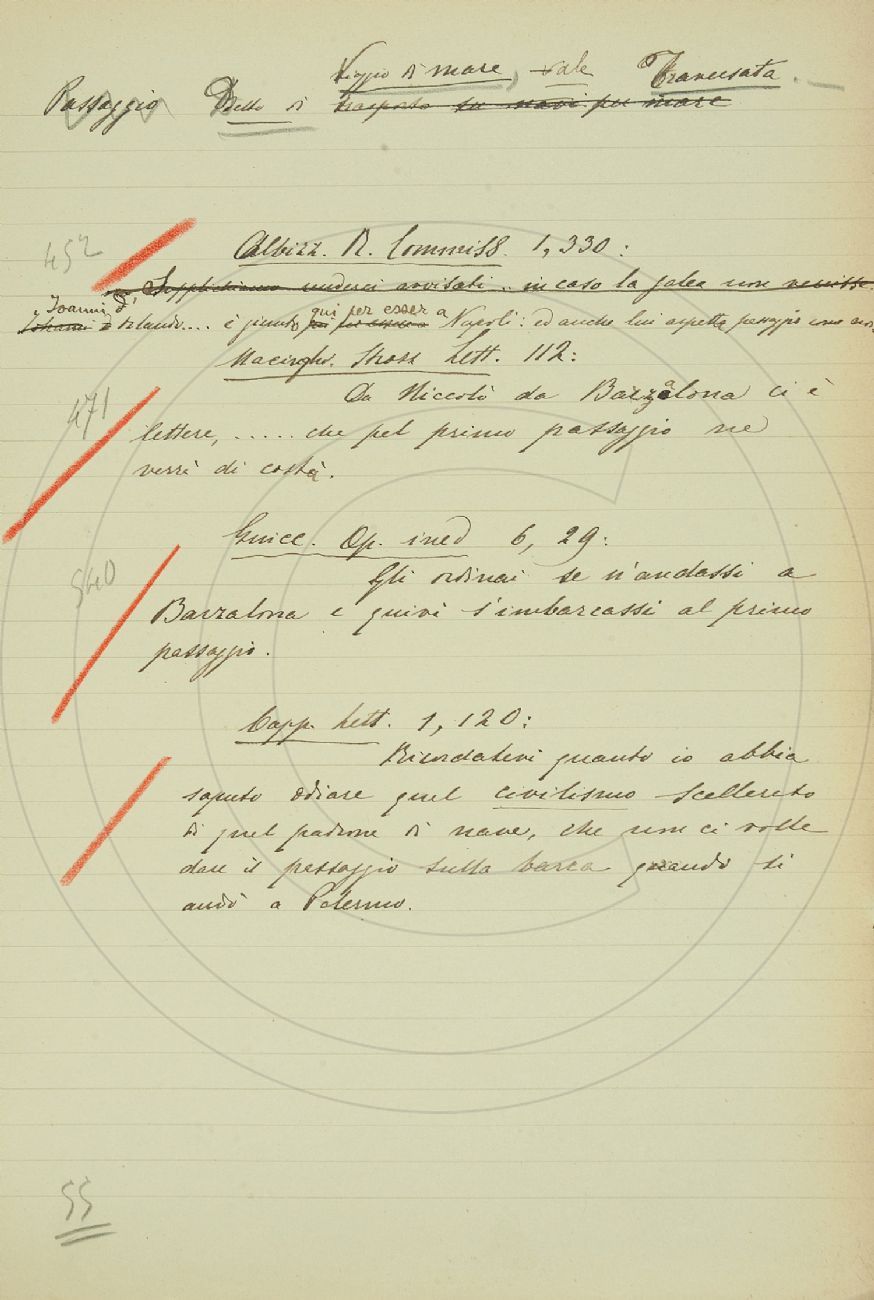 Viaggio di mare, vale Traversata.
Passaggio Detto di trasporto su navi per mare
452
Albizz. R. Commiss. 1, 330:
Supplichiamo renderci avvisati... in caso la galea non venisse
Joanni d'
qui per esser a
Johanni d'Orlando.... è giunto Napoli: ed anche lui aspetta passaggio come
Macinghi. Strozz Lett. 112:
471
Da Niccolò da Barzalona ci è
lettere, ..... che pel primo passaggio ne
verrà di costà.
Guicc. Op. ined 6, 29:
540
Gli ordinai se n'andassi a
Barzalona e quivi s'imbarcassi al primo
passaggio.
Capp. Lett. 1, 120:
Ricordatevi quanto io abbia
saputo odiare quel civilismo scellerato
di quel padrone di nave, che non ci volle
dare il passaggio sulla barca quando si
andò a Palermo.
55